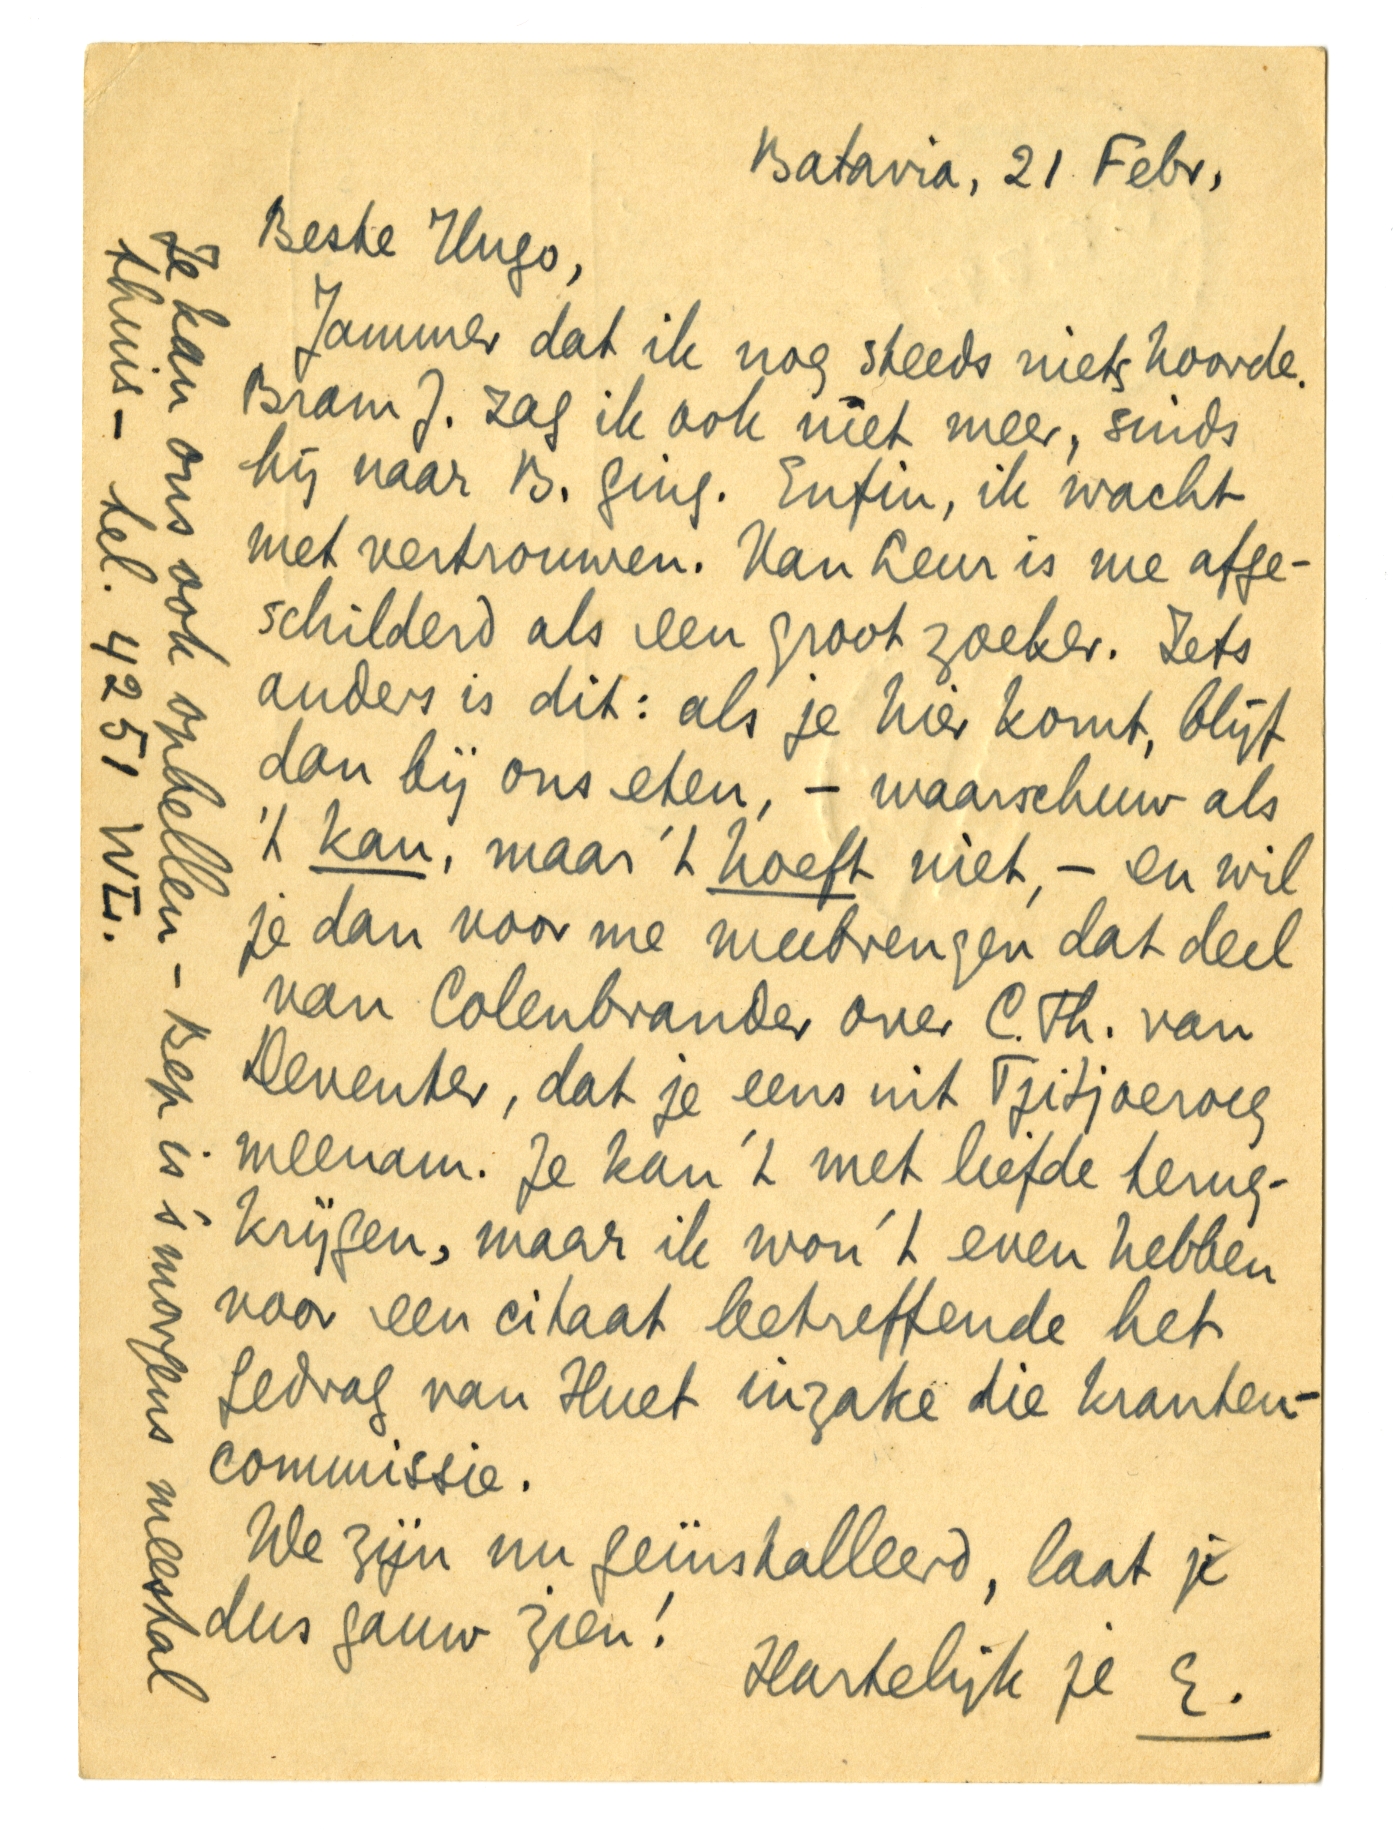 Batavia, 21 Febr,
Beste Hugo,
Jammer dat ik nog steeds niets hoorde.
Bram J. zag ik ook niet meer, sinds
hij naar B. ging. Enfin, ik wacht
met vertrouwen. Van Leur is me afge-
schilderd als een groot zoeker. Iets
anders is dit: als je hier komt, blijf
dan bij ons eten, – waarschuw als
't kan, maar 't hoeft niet, – en wil
je dan voor me meebrengen dat deel
van Colenbrander over C. Th. van
Deventer, dat je eens uit Tjitjoeroeg
meenam. Je kan 't met liefde terug-
krijgen, maar ik wou 't even hebben
voor een citaat betreffende het
gedrag van Huet inzake die kranten-
commissie.
We zijn nu geïnstalleerd, laat je
dus gauw zien!
Hartelijk je E.
Je kan ons ook opbellen – Bep is 's morgens meestal
thuis – tel. 4251 Wl.